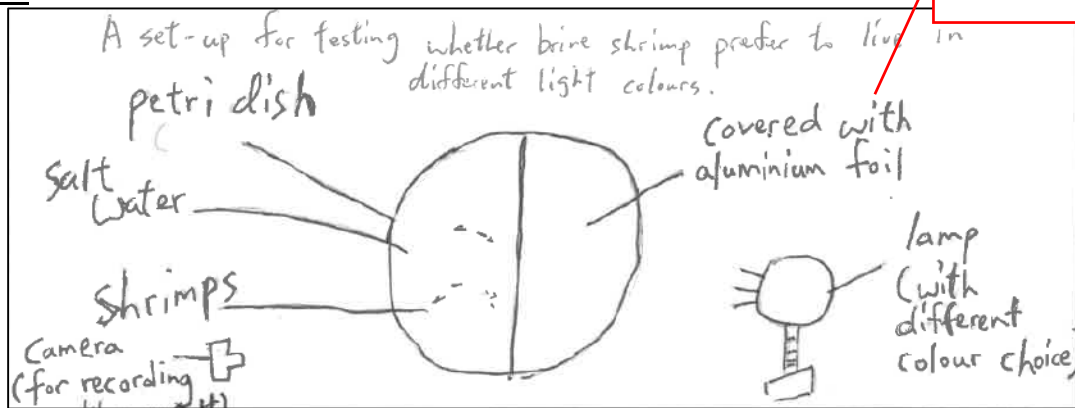 A set-up for testing whether brine shrimp prefer to live in
different light colours.
petri dish
salt
water
shrimps
camera
(for recording
covered with
aluminium foil
lamp
(with
different
colour choice)